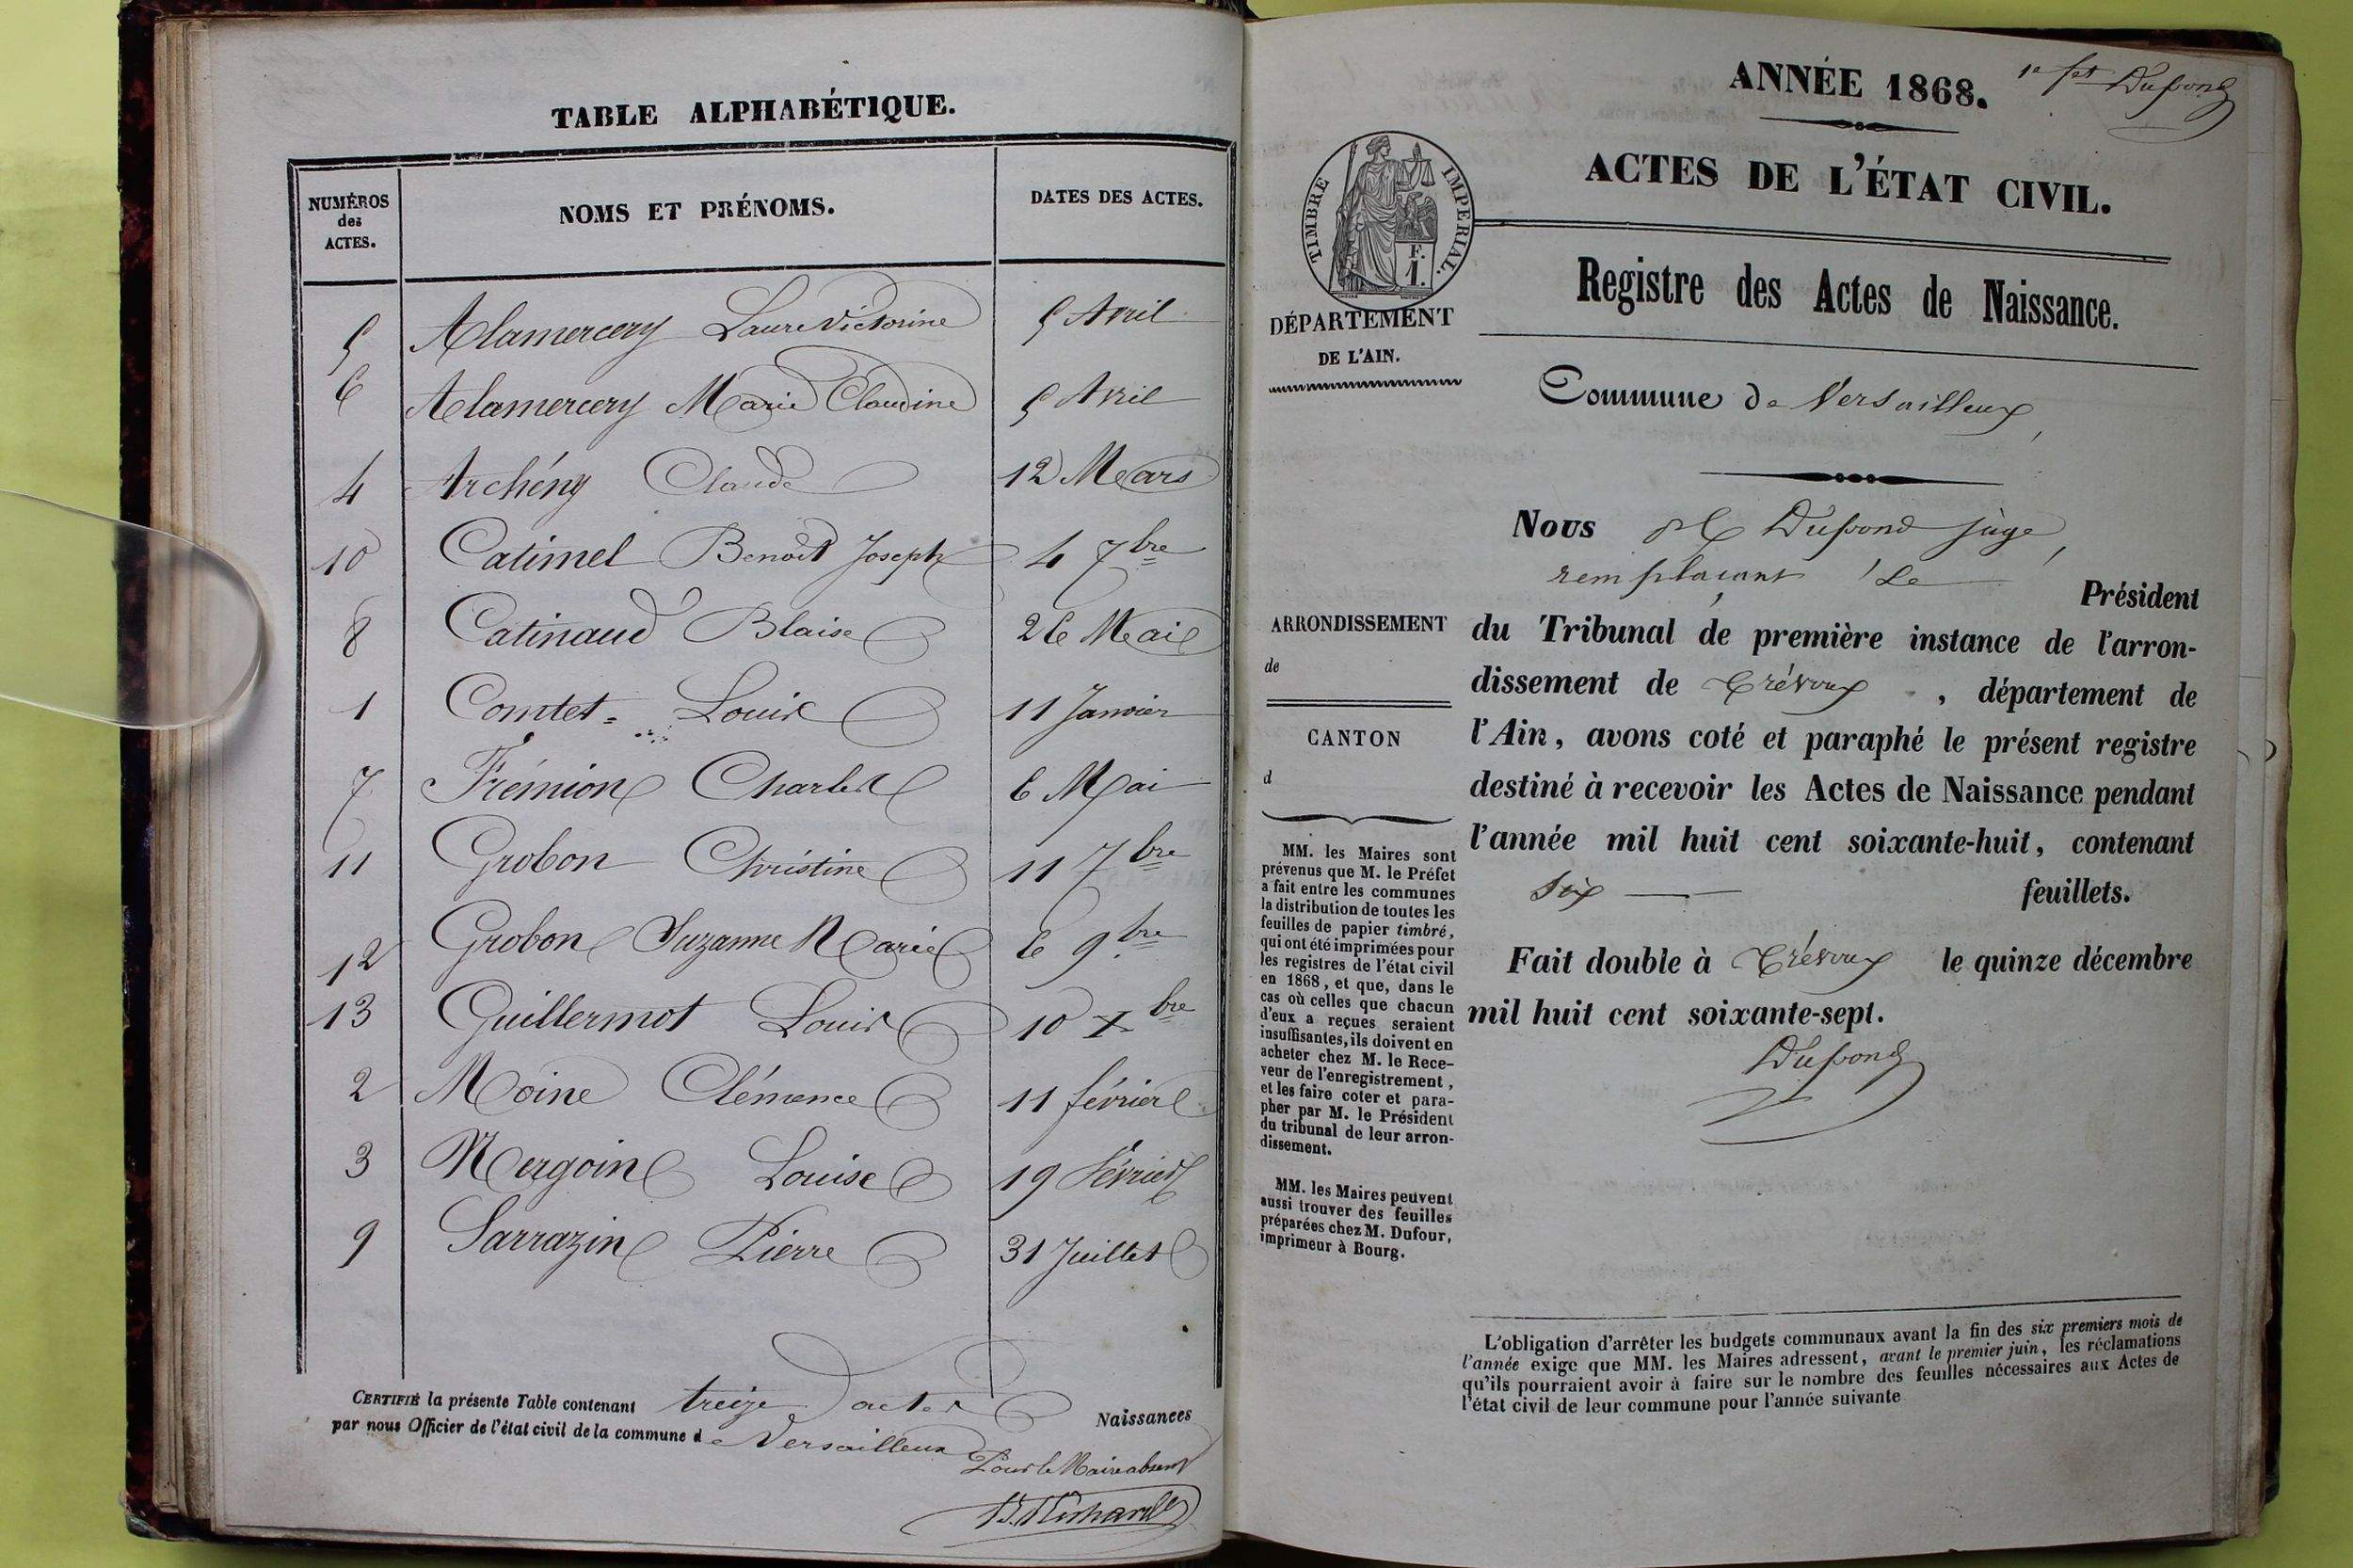 TABLE ALPHABÉTIQUE.
NUMÉROS des ACTES. NOMS ET PRÉNOMS. DATES DES ACTES.
5 Alamercery Laure Victorine 5 Avril
6 Alamercery Marie Claudine 5 Avril
4 Archény Claude 12 Mars
10 Catimel Benoît Joseph 4 7bre
8 Catinaud Blaise 26 Mai
1 Comtet Louis 11 Janvier
7 Frémion Charles 6 Mai
11 Grobon Christine 11 7bre
12 Grobon Suzanne Marie 6 9bre
13 Guillermot Louis 10 Xbre
2 Moine Clémence 11 février
3 Mergoin Louise 19 février
9 Sarrazin Pierre 31 Juillet
CERTIFIÉ la présente Table contenant treize actes Naissances
par nous Officier de l'état civil de la commune de Versailleux
Pour le Maire absent
ANNÉE 1868.
1er ft Dupond
ACTES DE L'ÉTAT CIVIL.
TIMBRE IMPERIAL.
F.
1.
Registre des Actes de Naissance.
DÉPARTEMENT
DE L'AIN.
Commune de Versailleux
Nous Dupond juge
remplaçant le
Président
ARRONDISSEMENT
de
CANTON
d
du Tribunal de première instance de l'arron-
dissement de Trévoux, département de
l'Ain, avons coté et paraphé le présent registre
destiné à recevoir les Actes de Naissance pendant
l'année mil huit cent soixante-huit, contenant
six feuillets.
Fait double à Trévoux le quinze décembre
mil huit cent soixante-sept.
Dupond
MM. les Maires sont
prévenus que M. le Préfet
a fait entre les communes
la distribution de toutes les
feuilles de papier timbré,
qui ont été imprimées pour
les registres de l'état civil
en 1868, et que, dans le
cas où celles que chacun
d'eux a reçues seraient
insuffisantes, ils doivent en
acheter chez M. le Rece-
veur de l'enregistrement,
et les faire coter et para-
pher par M. le Président
du tribunal de leur arron-
dissement.
MM. les Maires peuvent
aussi trouver des feuilles
préparées chez M. Dufour,
imprimeur à Bourg.
L'obligation d'arrêter les budgets communaux avant la fin des six premiers mois de
l'année exige que MM. les Maires adressent, avant le premier juin, les réclamations
qu'ils pourraient avoir à faire sur le nombre des feuilles nécessaires aux Actes de
l'état civil de leur commune pour l'année suivante